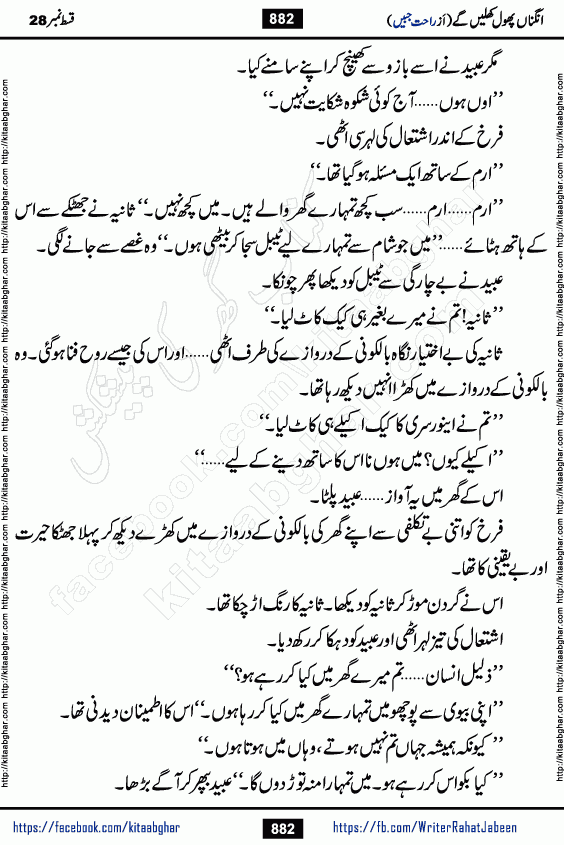 انگناں پھول کھلیں گے (از راحت جبیں) 882 قسط نمبر 28
مگر عبید نے اسے بازو سے کھینچ کر اپنے سامنے کیا۔
’’اوں ہوں......آج کوئی شکوہ شکایت نہیں۔‘‘
فرخ کے اندر اشتعال کی لہر سی اٹھی۔
’’ارم کے ساتھ ایک مسئلہ ہو گیا تھا۔‘‘
’’ارم......ارم......سب کچھ تمہارے گھر والے ہیں۔ میں کچھ نہیں۔‘‘ ثانیہ نے جھٹکے سے اس
کے ہاتھ ہٹائے......’’میں جو شام سے تمہارے لیے ٹیبل سجا کر بیٹھی ہوں۔‘‘ وہ غصے سے جانے لگی۔
عبید نے بے چارگی سے ٹیبل کو دیکھا پھر چونکا۔
’’ثانیہ! تم نے میرے بغیر ہی کیک کاٹ لیا۔‘‘
ثانیہ کی بے اختیار نگاہ بالکونی کے دروازے کی طرف اٹھی......اور اس کی جیسے روح فنا ہو گئی۔ وہ
بالکونی کے دروازے میں کھڑا انہیں دیکھ رہا تھا۔
’’تم نے اینورسری کا کیک اکیلے ہی کاٹ لیا۔‘‘
’’اکیلے کیوں؟ میں ہوں نا اس کا ساتھ دینے کے لیے......‘‘
اس کے گھر میں یہ آواز......عبید پلٹا۔
فرخ کو اتنی بے تکلفی سے اپنے گھر کی بالکونی کے دروازے میں کھڑے دیکھ کر پہلا جھٹکا حیرت
اور بے یقینی کا تھا۔
اس نے گردن موڑ کر ثانیہ کو دیکھا۔ ثانیہ کا رنگ اڑ چکا تھا۔
اشتعال کی تیز لہر اٹھی اور عبید کو دہکا کر رکھ دیا۔
’’ذلیل انسان......تم میرے گھر میں کیا کر رہے ہو؟‘‘
’’اپنی بیوی سے پوچھو میں تمہارے گھر میں کیا کر رہا ہوں۔‘‘ اس کا اطمینان دیدنی تھا۔
’’کیونکہ ہمیشہ جہاں تم نہیں ہوتے، وہاں میں ہوتا ہوں۔‘‘
’’کیا بکواس کر رہے ہو۔ میں تمہارا منہ توڑ دوں گا۔‘‘ عبید بپھر کر آگے بڑھا۔
https://facebook.com/kitaabghar 882 https://fb.com/WriterRahatJabeen
http://kitaabghar.com http://kitaabghar.com http://kitaabghar.com http://kitaabghar.com http://kitaabghar.com
کتاب گھر کی پیشکش
facebook.com/kitaabghar
kitaabghar.com